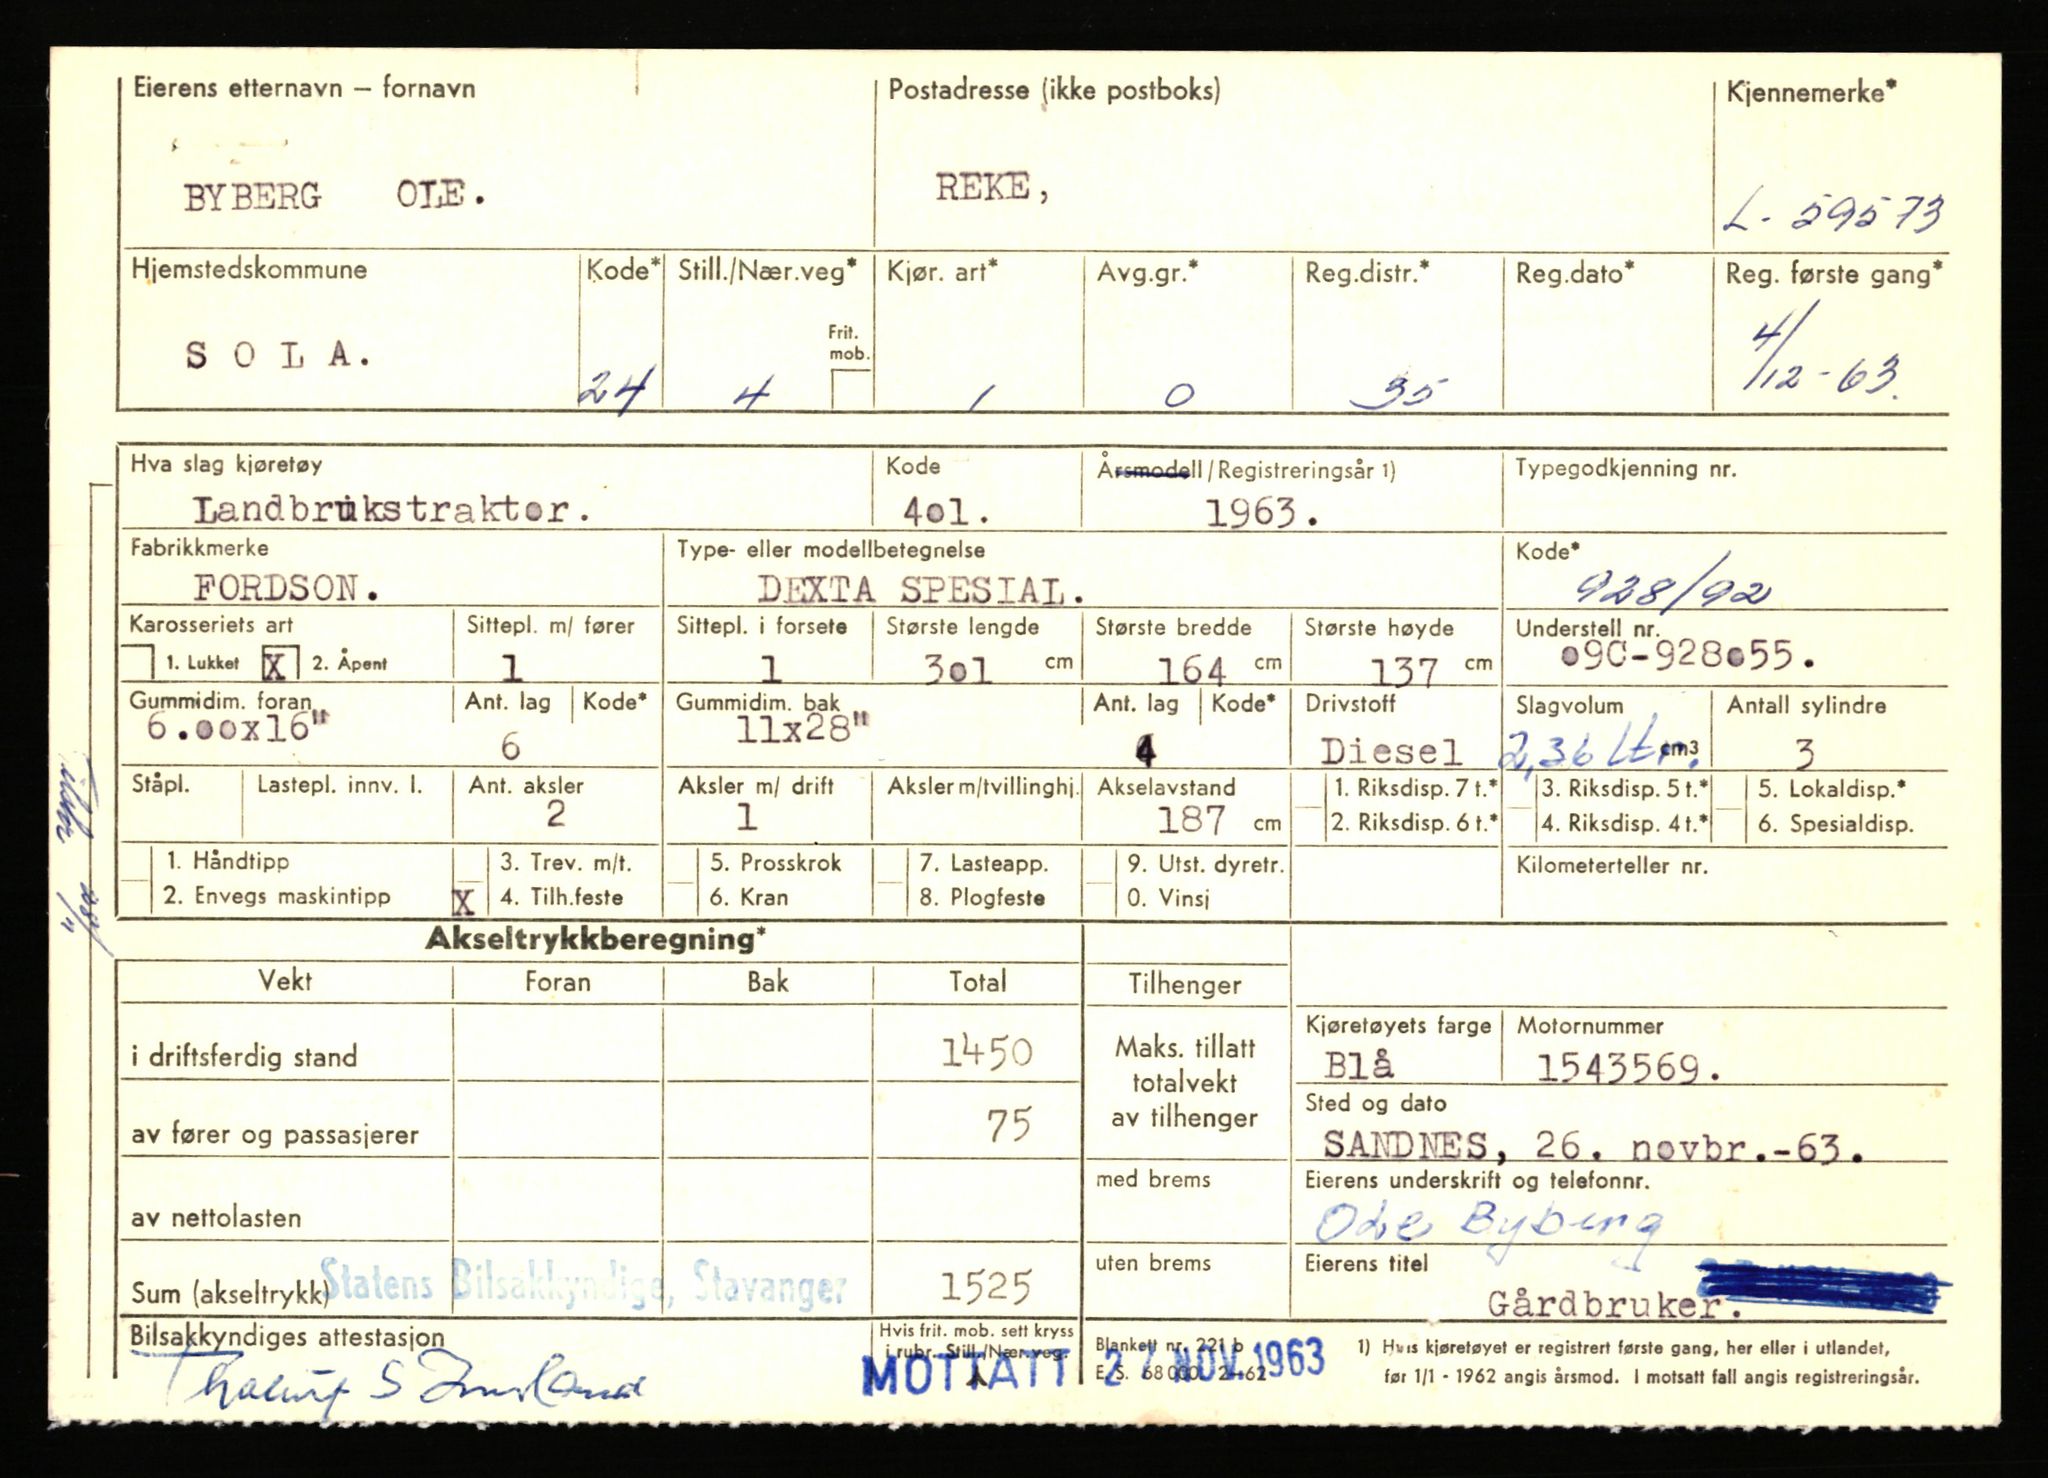 Eierens etternavn – fornavn Postadresse (ikke postboks) Kjennemerke*
BYBERG OLE. REKE, L - 59573
Hjemstedskommune Kode* Still./Nær.veg* Kjør. art* Avg.gr.* Reg.distr.* Reg.dato* Reg. første gang*
Frit.
mob.
S O L A. 24 4 1 0 35 4/12-63.
Hva slag kjøretøy Kode Årsmodell/Registreringsår 1) Typegodkjenning nr.
Landbrukstraktor. 401. 1963.
Fabrikkmerke Type- eller modellbetegnelse Kode*
FORDSON. DEXTA SPESIAL. 928/92
Karosseriets art Sittepl. m/ fører Sittepl. i forsete Største lengde Største bredde Største høyde Understell nr.
1. Lukket X 2. Åpent 1 1 301 cm 164 cm 137 cm 09C-928055.
Gummidim. foran Ant. lag Kode* Gummidim. bak Ant. lag Kode* Drivstoff Slagvolum Antall sylindre
6.00x16" 6 11x28" 4 Diesel 2,36 Ltr. cm3 3
Ståpl. Lastepl. innv. l. Ant. aksler Aksler m/ drift Aksler m/tvillinghj. Akselavstand 1. Riksdisp. 7 t.* 3. Riksdisp. 5 t.* 5. Lokaldisp.*
2 1 187 cm 2. Riksdisp. 6 t.* 4. Riksdisp. 4 t.* 6. Spesialdisp.
1. Håndtipp 3. Trev. m/t. 5. Prosskrok 7. Lasteapp. 9. Utst. dyretr. Kilometerteller nr.
2. Envegs maskintipp X 4. Tilh.feste 6. Kran 8. Plogfeste 0. Vinsj
Akseltrykkberegning*
Vekt Foran Bak Total Tilhenger
Kjøretøyets farge Motornummer
i driftsferdig stand 1450 Maks. tillatt
totalvekt
av tilhenger
Blå 1543569.
Sted og dato
av fører og passasjerer 75
SANDNES, 26. novbr.-63.
med brems Eierens underskrift og telefonnr.
av nettolasten
Ole Byberg
uten brems Eierens titel
Sum (akseltrykk) Statens Bilsakkyndige, Stavanger 1525
Gårdbruker.
Bilsakkyndiges attestasjon Hvis frit. mob. sett kryss
i rubr. Still./Nær.veg.
Blankett nr. 221 b
E. S. 68 000. 2-62
MOTTATT 27 NOV. 1963
1) Hvis kjøretøyet er registrert første gang, her eller i utlandet,
før 1/1 - 1962 angis årsmod. I motsatt fall angis registreringsår.